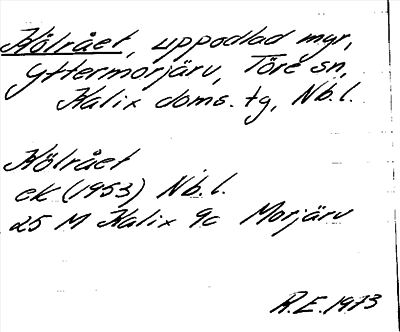 Kölrået, uppodlad mgr,
Yttermorjärv, Töre sn,
Kalix doms. tg, Nb.l.
Kölrået
ek (1953) Nb.l.
25 M Kalix 9c Morjärv
R.E. 1973